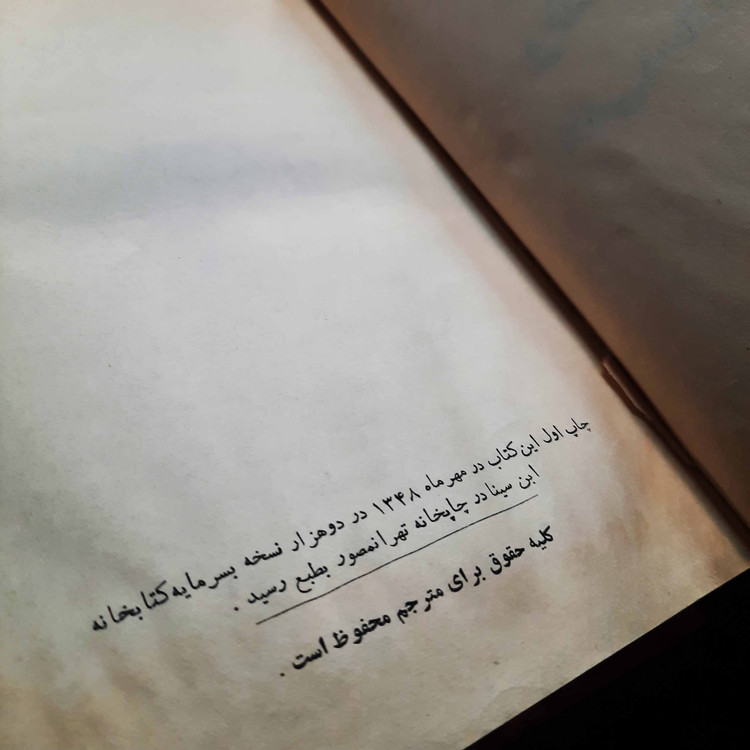 چاپ اول این کتاب در مهر ماه ۱۳۴۸ در دوهزار نسخه بسرمایه کتابخانه
ابن سینا در چاپخانه تهرانمصور بطبع رسید .
کلیه حقوق برای مترجم محفوظ است .